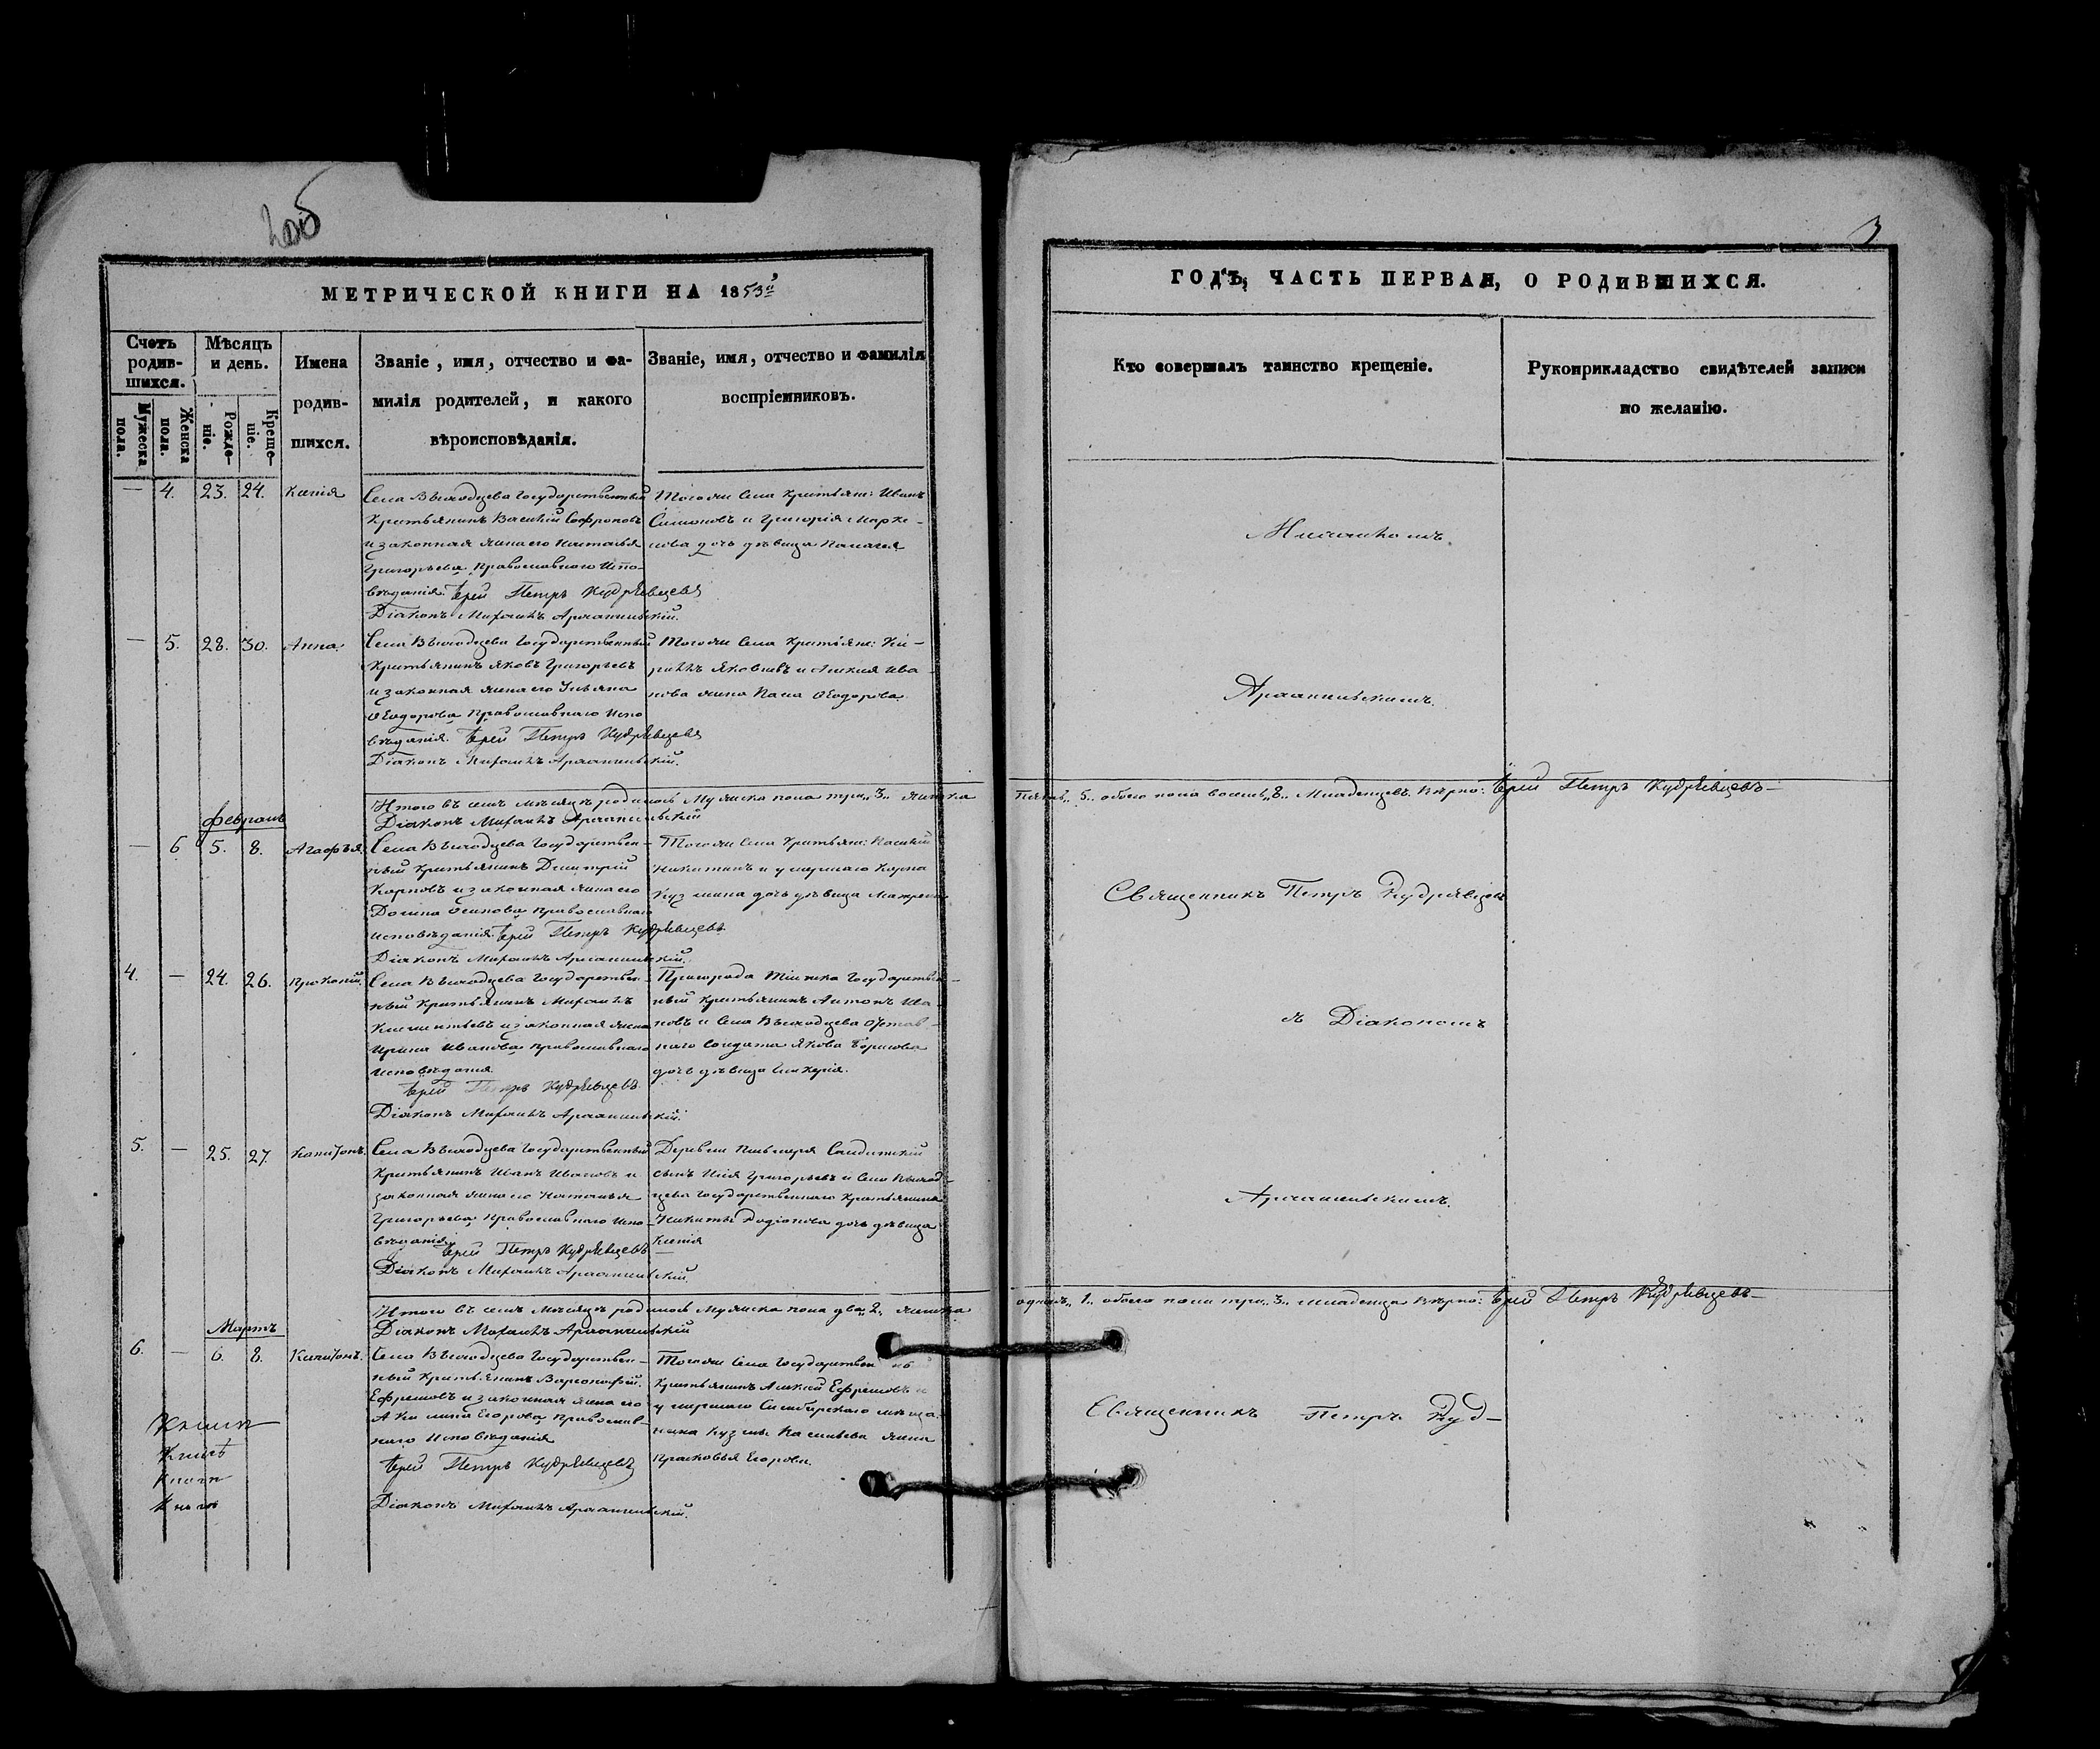 205
3
МЕТРИЧЕСКОЙ КНИГИ НА 1853й
ГОДЪ, ЧАСТЬ ПЕРВАЯ, О РОДИВШИХСЯ.
Счетъ родившихся.
Мужеска пола.
Женска пола.
Мѣсяцъ и день.
Рожденіе.
Крещеніе.
Имена родившихся.
Званіе, имя, отчество и фа-
милія родителей, и какого
вѣроисповѣданія.
Званіе, имя, отчество и фамилія
воспріемниковъ.
Кто совершалъ таинство крещеніе.
Рукоприкладство свидѣтелей записи
по желанію.
— 4. 23. 24. Ксенія
Села Выходцева Государственный
Крестьянинъ Василій Софроновъ
и законная жена его Наталья
Григорьева, Православнаго Испо-
вѣданія. Іерей Петръ Кудрявцевъ
Діаконъ Михаилъ Архангельскій.
Тогоже Села Крестьяне: Иванъ
Симоновъ и Григорія Марке-
лова дочь дѣвица Палагея
Михаиломъ
— 5. 28. 30. Анна.
Села Выходцева Государственный
Крестьянинъ Яковъ Григорьевъ
и законная жена его Ульяна
Ѳеодорова Православнаго Испо
вѣданія. Іерей Петръ Кудрявцевъ
Діаконъ Михаилъ Архангельскій.
Тогоже Села Крестьяне: Ки-
риллъ Яковлевъ и Алексѣя Ива
нова жена Ѳеодорова.
Архангельскимъ.
Итого въ семъ мѣсяцѣ родилось Мужеска пола три „3„ женска
пять „5„ обоего пола восемь „8„ Младенцевъ. Вѣрно: Іерей Петръ Кудрявцевъ—
Діаконъ Михаилъ Архангельскій
Февраль
— 6 5. 8. Агафья.
Села Выходцева Государствен-
ный Крестьянинъ Димитрій
Карповъ и законная жена его
Домна Осипова Православнаго
исповѣданія. Іерей Петръ Кудрявцевъ
Діаконъ Михаилъ Архангельскій.
Тогоже Села Крестьяне: Василій
Никитинъ и умершаго Карпа
Кузмина дочь дѣвица Матрена
Священникъ Петръ Кудрявцевъ
4. — 24. 26. Прокопій.
Села Выходцева Государствен-
ный Крестьянинъ Михаилъ
Климентьевъ и законная жена
Ирина Иванова Православнаго
исповѣданія
Іерей Петръ Кудрявцевъ.
Діаконъ Михаилъ Архангельскій.
Пригорода Тіинска Государствен-
ный Крестьянинъ Антонъ Ива
новъ и Села Выходцева Отстав-
наго Солдата Якова Борисова
дочь дѣвица Гликерія.
съ Діакономъ
5. — 25. 27. Капитонъ.
Села Выходцева Государственный
Крестьянинъ Иванъ Ивановъ и
законная жена его Наталья
Григорьева Православнаго Испо-
вѣданія. Іерей Петръ Кудрявцевъ
Діаконъ Михаилъ Архангельскій.
Деревни Солдатскій
сынъ Илія Григорьевъ и Села Выход-
цева Государственнаго Крестьянина
Никиты Родіонова дочь дѣвица
Ксенія
Архангельскимъ.
Итого въ семъ Мѣсяцѣ родилось Мужеска пола два „2„ женска
одна „1„ обоего пола три „3„ младенца Вѣрно: Іерей Петръ Кудрявцевъ—
Діаконъ Михаилъ Архангельскій
Мартъ
6. — 6. 8. Капитонъ.
Села Выходцева Государствен-
ный Крестьянинъ Варсонофій
Ефремовъ и законная жена его
Акилина Егорова Православ-
наго Исповѣданія
Іерей Петръ Кудрявцевъ
Діаконъ Михаилъ Архангельскій.
Тогоже Села Государствен
Крестьянинъ Алексѣй Ефремовъ и
умершаго Симбирскаго мѣща-
нина Кузмы Васильева жена
Прасковья Егорова.
Священникъ Петръ Куд—